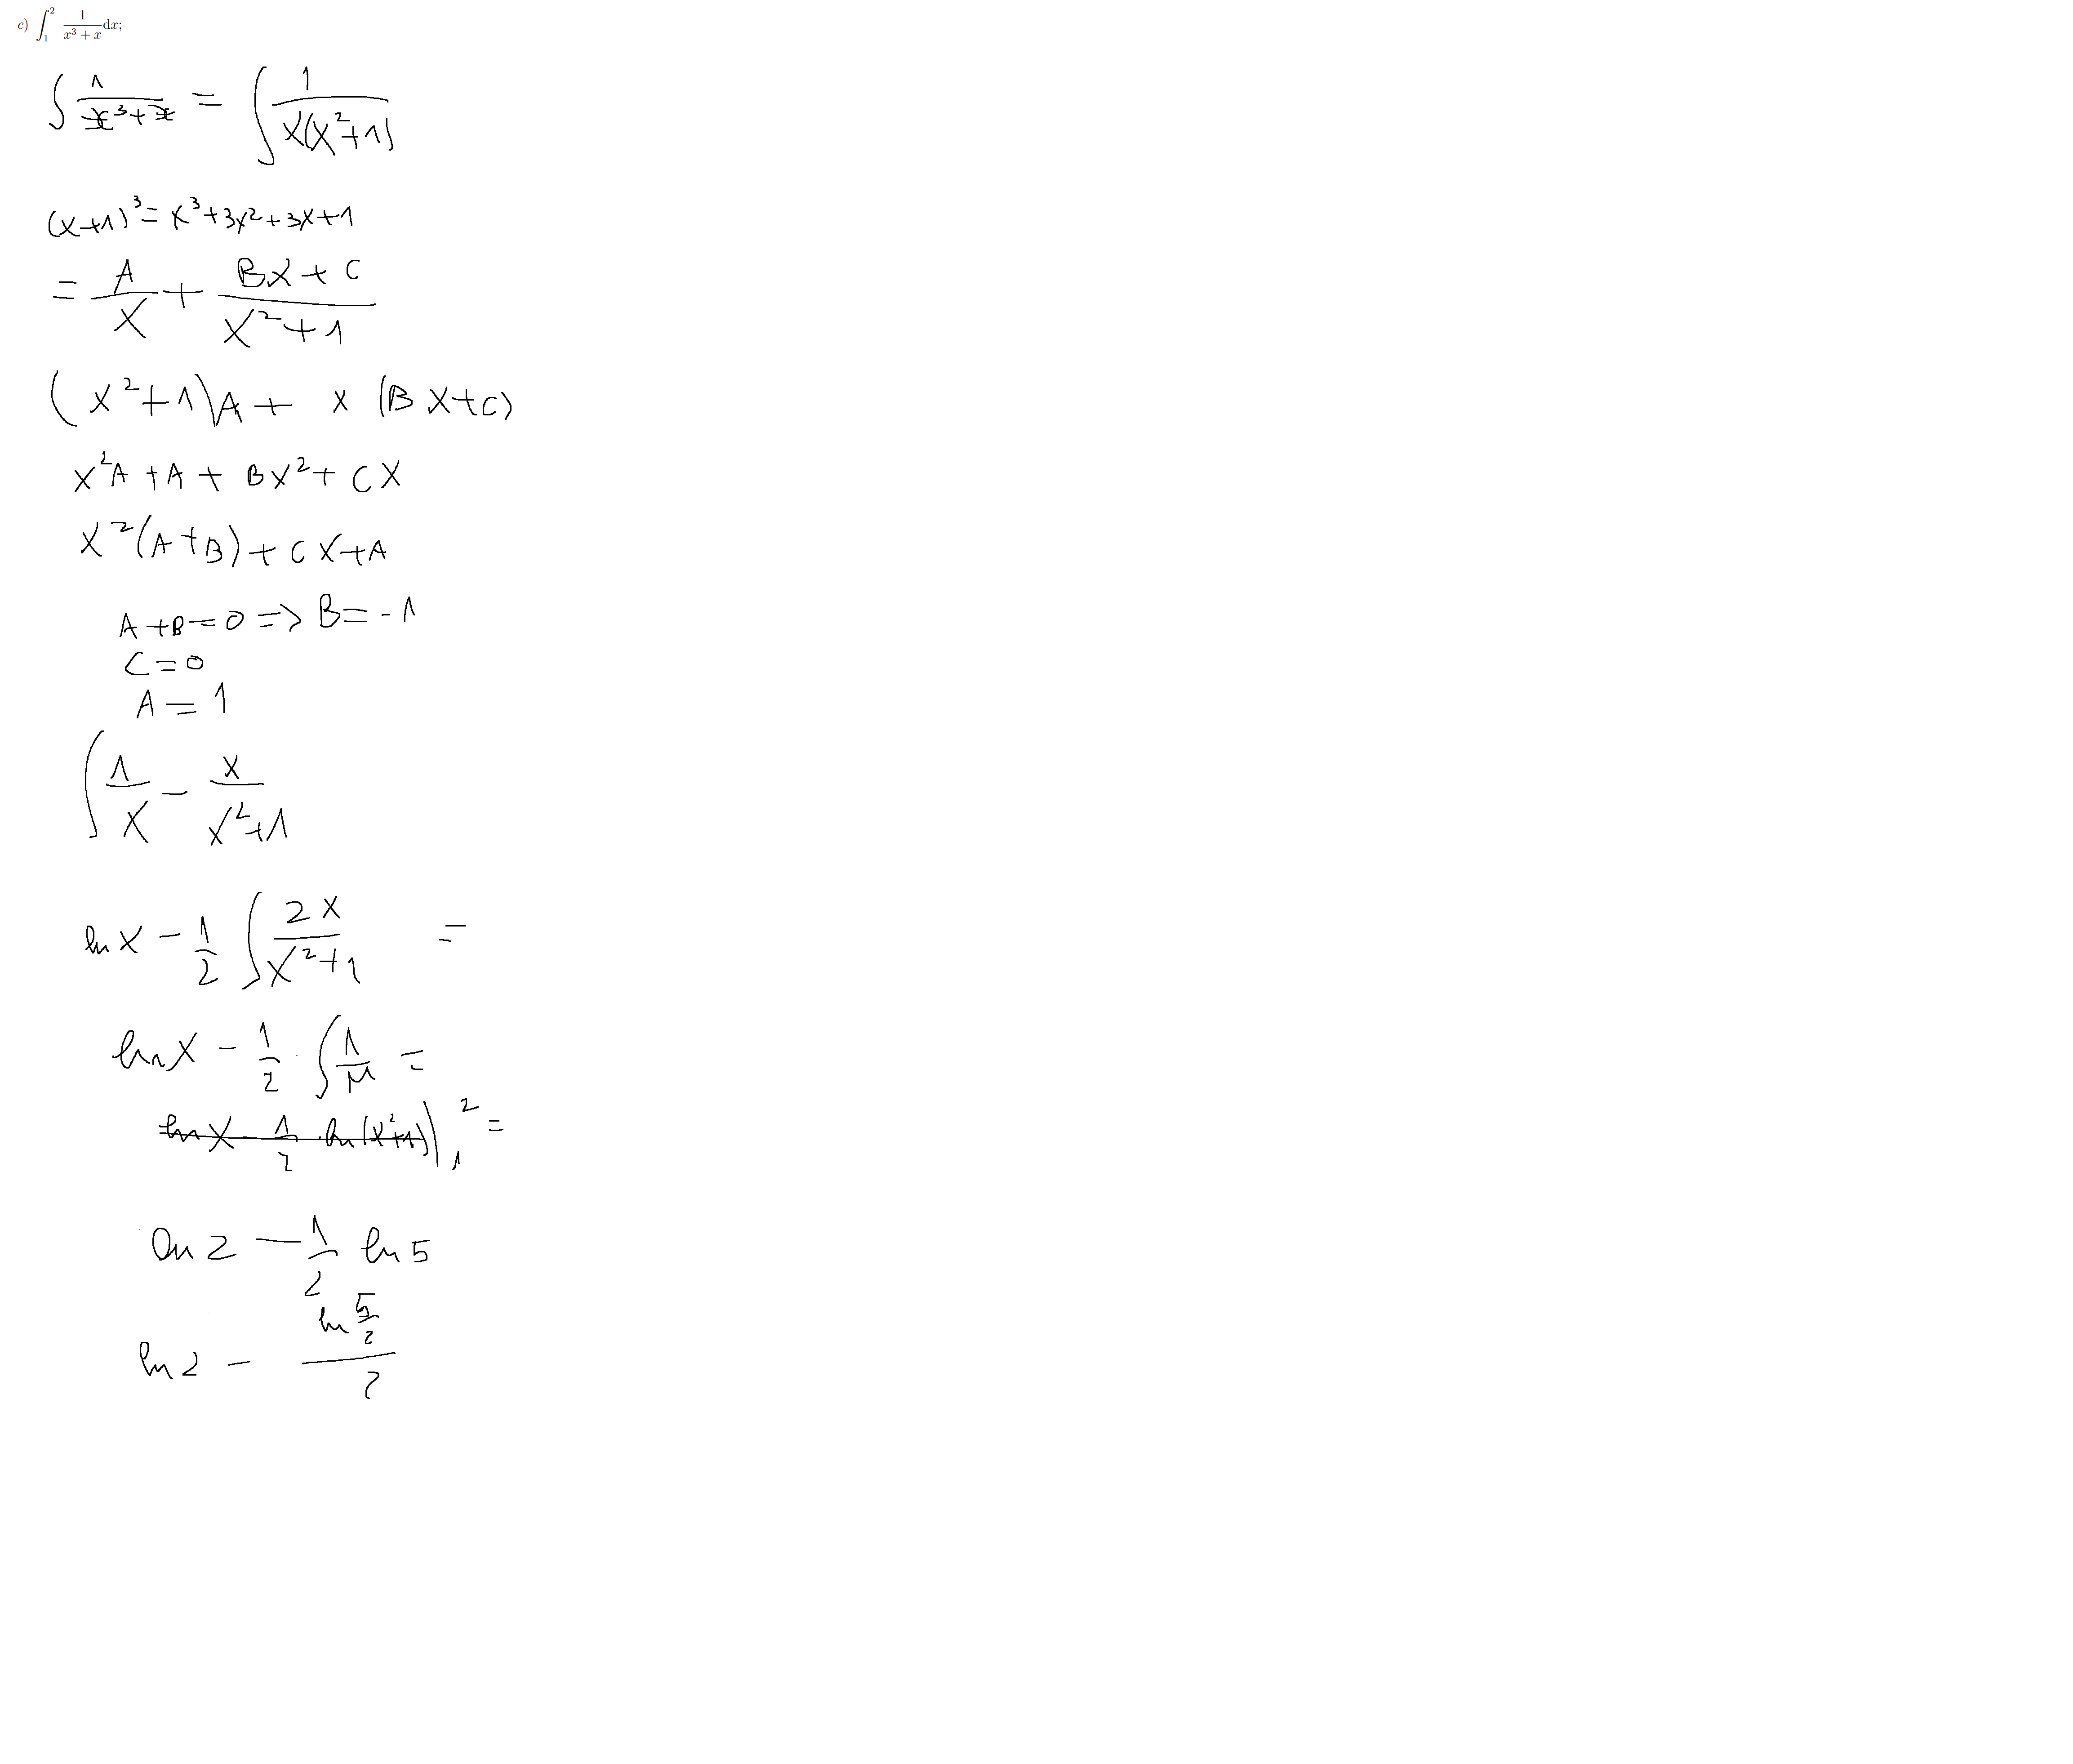 c) ∫₁² 1/(x³ + x) dx;
∫ 1/(x³+x) = ∫ 1/(x(x²+1))
(x+1)³ = x³+3x²+3x+1
= A/x + (Bx+C)/(x²+1)
(x²+1)A + x(Bx+C)
x²A + A + Bx² + Cx
x²(A+B) + Cx + A
A+B=0 => B=-1
C=0
A=1
∫ 1/x - x/(x²+1)
ln x - 1/2 ∫ 2x/(x²+1) =
ln x - 1/2 · ∫ 1/μ =
ln x - 1/2 · ln(x²+1) |₁² =
ln 2 - 1/2 ln 5
ln 2 - (ln 5/2)/2